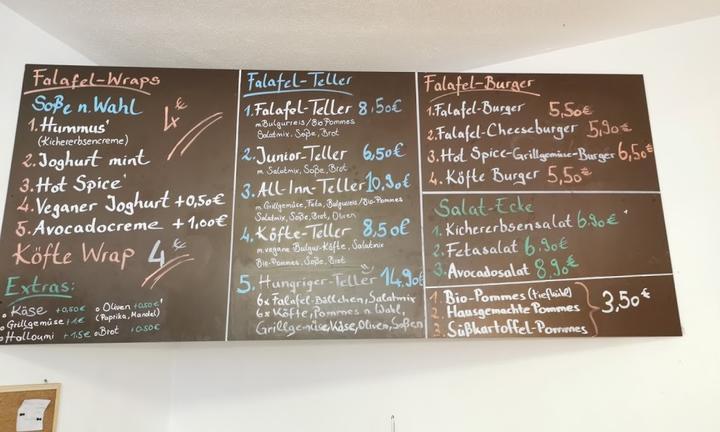 Falafel-Wraps
Soße n. Wahl
4€
1. Hummus
(Kichererbsencreme)
2. Joghurt mint
3. Hot Spice
4. Veganer Joghurt +0,50€
5. Avocadocreme +1,00€
Köfte Wrap 4€
Extras:
Käse +0,50€
Grillgemüse +1€
Halloumi +1.5€
Oliven +0.50€
(Paprika, Mandel)
Brot +0.50€
Falafel-Teller
1. Falafel-Teller 8,50€
m. Bulgurreis/Bio Pommes
Salatmix, Soße, Brot
2. Junior-Teller 6,50€
m. Salatmix, Soße, Brot
3. All-Inn-Teller 10,90€
m. Grillgemüse, Feta, Bulgurreis/Bio-Pommes
Salatmix, Soße, Brot, Oliven
4. Köfte-Teller 8,50€
m. vegane Bulgur-Köfte, Salatmix
Bio-Pommes, Soße, Brot
5. Hungriger-Teller 14.90€
6x Falafel-Bällchen, Salatmix
6x Köfte, Pommes n. Wahl,
Grillgemüse, Käse, Oliven, Soßen
Falafel-Burger
1. Falafel-Burger 5,50€
2. Falafel-Cheeseburger 5,90€
3. Hot Spice-Grillgemüse-Burger 6,50€
4. Köfte Burger 5,50€
Salat-Ecke
1. Kichererbsensalat 6.90€
2. Fetasalat 6,90€
3. Avocadosalat 8,90€
1. Bio-Pommes (tiefkühl)
2. Hausgemachte Pommes
3. Süßkartoffel-Pommes
3,50€